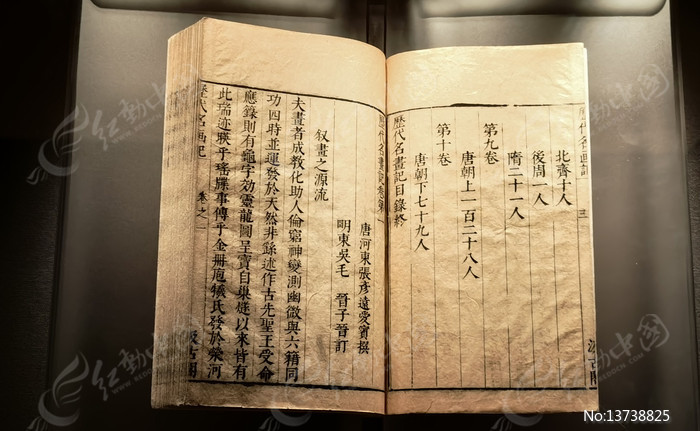 北齊十人
後周一人
隋二十一人
第九卷
唐朝上一百二十八人
第十卷
唐朝下七十九人
歷代名畫記目錄終
歷代名畫記
三
汲古閣
歷代名畫記卷第一
唐河東張彥遠愛賓撰
明東吳毛 晉子晉訂
叙畫之源流
夫畫者成教化助人倫窮神變測幽微與六籍同
功四時並運發於天然非繇述作古先聖王受命
應籙則有龜字效靈龍圖呈寶自巢燧以來皆有
此瑞迹暎乎瑤牒事傳乎金冊庖犧氏發於滎河
歷代名画記
卷之一
汲古閣
红动中国
红动中国
红动中国
红动中国
No:13738825